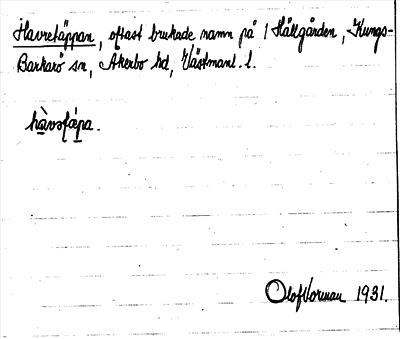 Havretäppan, oftast brukade namn på 1 Hällgården, Kungs-
Barkarö sn, Åkerbo hd, Västmanl. l.
Olof Norman 1931.